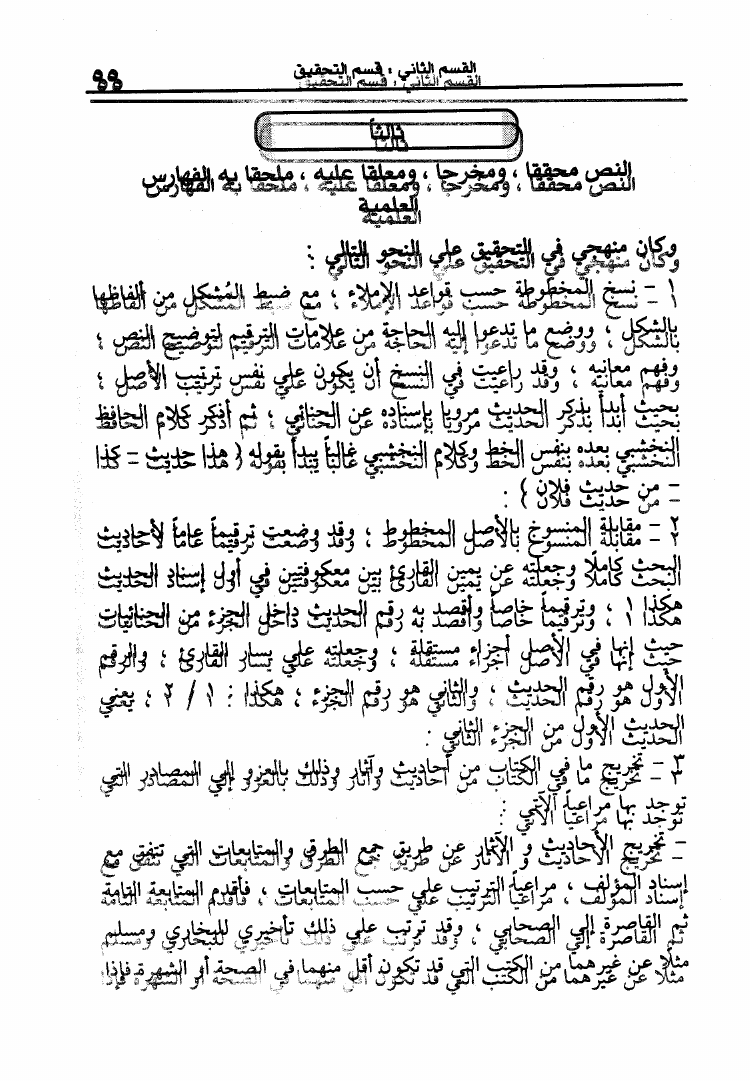 القسم الثاني : قسم التحقيق
٩٩
ثالثاً
النص محققا ، ومخرجا ، ومعلقا عليه ، ملحقا به الفهارس
العلمية
وكان منهجي في التحقيق علي النحو التالي :
١ – نسخ المخطوطة حسب قواعد الإملاء ، مع ضبط المُشكل من ألفاظها
بالشكل ، ووضع ما تدعوا إليه الحاجة من علامات الترقيم لتوضيح النص ،
وفهم معانيه ، وقد راعيت في النسخ أن يكون علي نفس ترتيب الأصل ،
بحيث أبدأ بذكر الحديث مرويا بإسناده عن الحنائي ، ثم أذكر كلام الحافظ
النخشبي بعده بنفس الخط وكلام النخشبي غالباً يبدأ بقوله ( هذا حديث – كذا
– من حديث فلان ) .
٢ – مقابلة المنسوخ بالأصل المخطوط ، وقد وضعت ترقيماً عاماً لأحاديث
البحث كاملاً وجعلته عن يمين القارئ بين معكوفتين في أول إسناد الحديث
هكذا ١ ، وترقيماً خاصاً وأقصد به رقم الحديث داخل الجزء من الحنائيات
حيث إنها في الأصل أجزاء مستقلة ، وجعلته علي يسار القارئ ، والرقم
الأول هو رقم الحديث ، والثاني هو رقم الجزء ، هكذا : ١ / ٢ ، يعني
الحديث الأول من الجزء الثاني .
٣ – تخريج ما في الكتاب من أحاديث وآثار وذلك بالعزو إلي المصادر التي
توجد بها مراعياً الآتي :
– تخريج الأحاديث و الآثار عن طريق جمع الطرق والمتابعات التي تتفق مع
إسناد المؤلف ، مراعياً الترتيب علي حسب المتابعات ، فأقدم المتابعة التامة
ثم القاصرة إلي الصحابي ، وقد ترتب علي ذلك تأخيري للبخاري ومسلم
مثلاً عن غيرهما من الكتب التي قد تكون أقل منهما في الصحة أو الشهرة فإذا